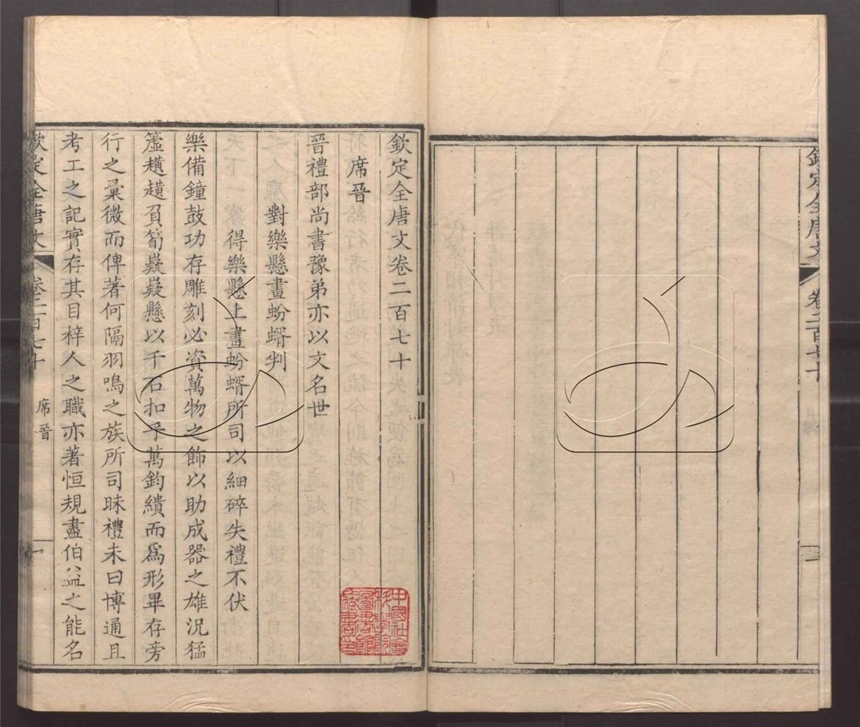 欽定全唐文
卷二百七十
欽定全唐文卷二百七十
席晉
晉禮部尚書豫弟亦以文名世
對樂懸畫蚡蝑判
得樂懸上畫蚡蝑所司以細碎失禮不伏
樂備鐘鼓功存雕刻必資萬物之飾以助成器之雄況猛
簴趪趪負筍嶷嶷懸以千石扣乎萬鈞繢而爲形畢存旁
行之彙微而俾著何隔羽鳴之族所司昧禮未曰博通且
考工之記實存其目梓人之職亦著恒規盡伯益之能名
欽定全唐文
卷二百七十
席晉
一